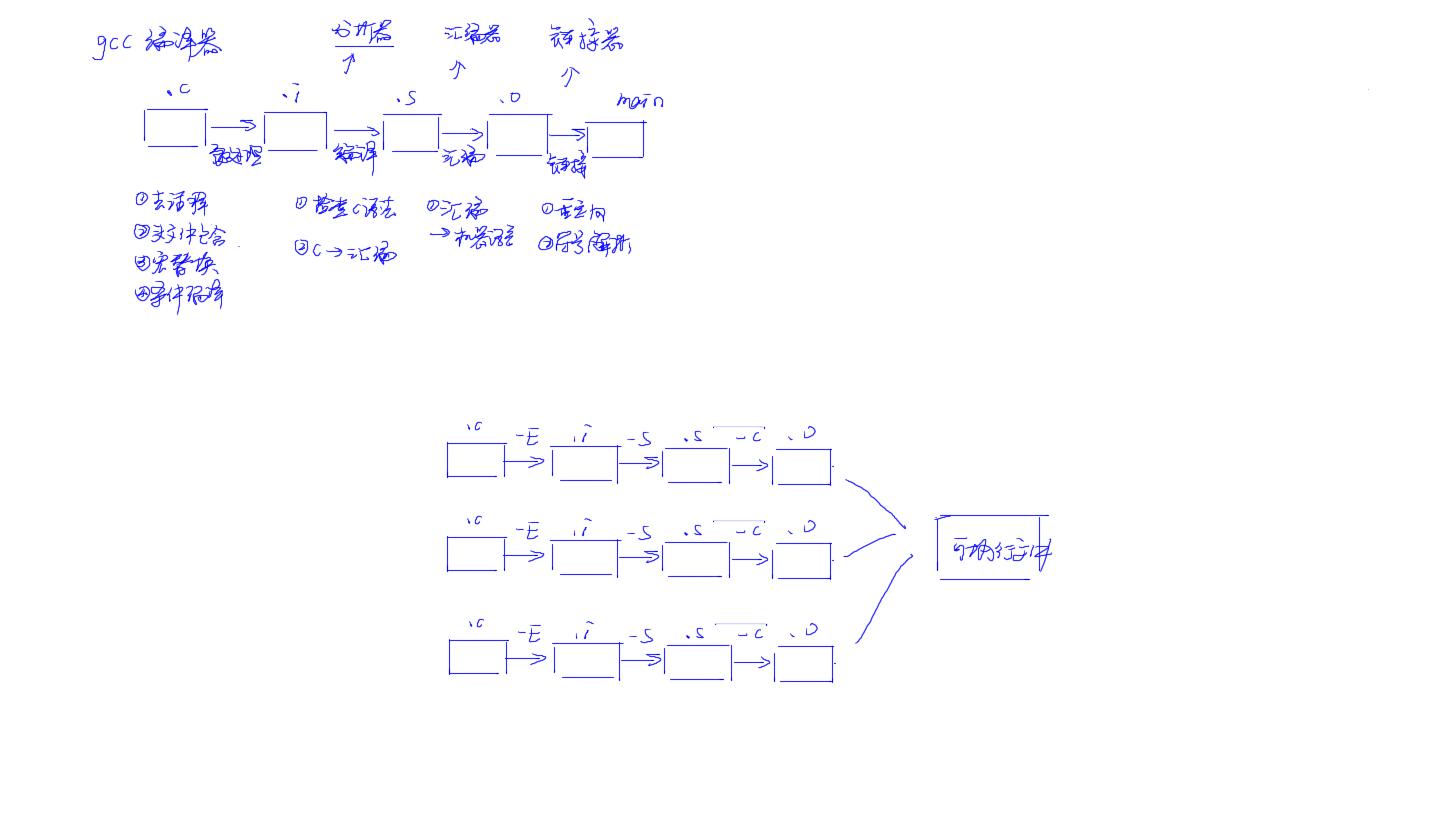 gcc 编译器
分析器 汇编器 链接器
.c .i .s .o main
预处理 编译 汇编 链接
①去注释
②头文件包含
③宏替换
④条件编译
①检查c语法
②C→汇编
①汇编
→机器语言
①重定向
②符号解析
.c -E .i -S .s -c .o
.c -E .i -S .s -c .o
可执行文件
.c -E .i -S .s -c .o